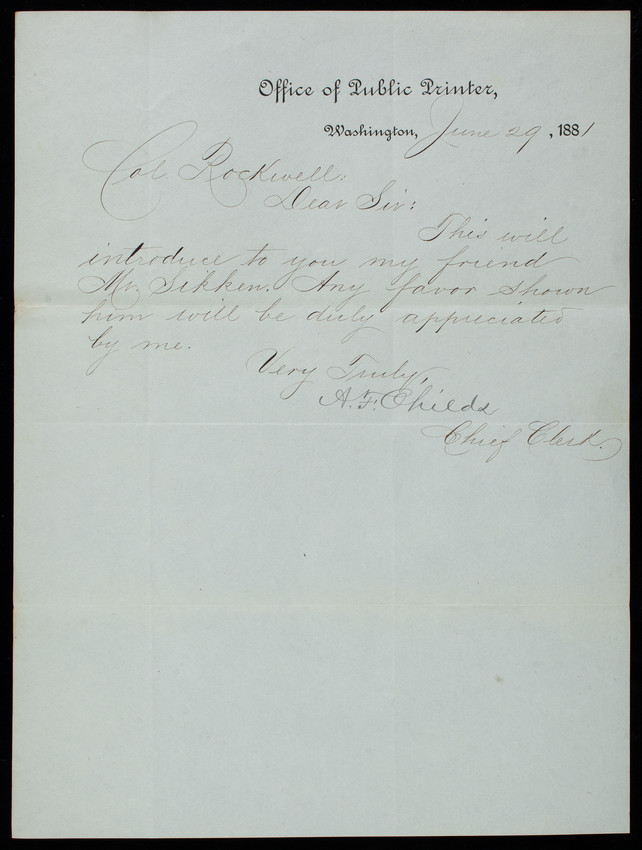 Office of Public Printer,
Washington, June 29, 1881
Col. Rockwell:
Dear Sir:
This will
introduce to you my friend
Mr. Sikken. Any favor shown
him will be duly appreciated
by me.
Very Truly,
A. F. Childs
Chief Clerk.